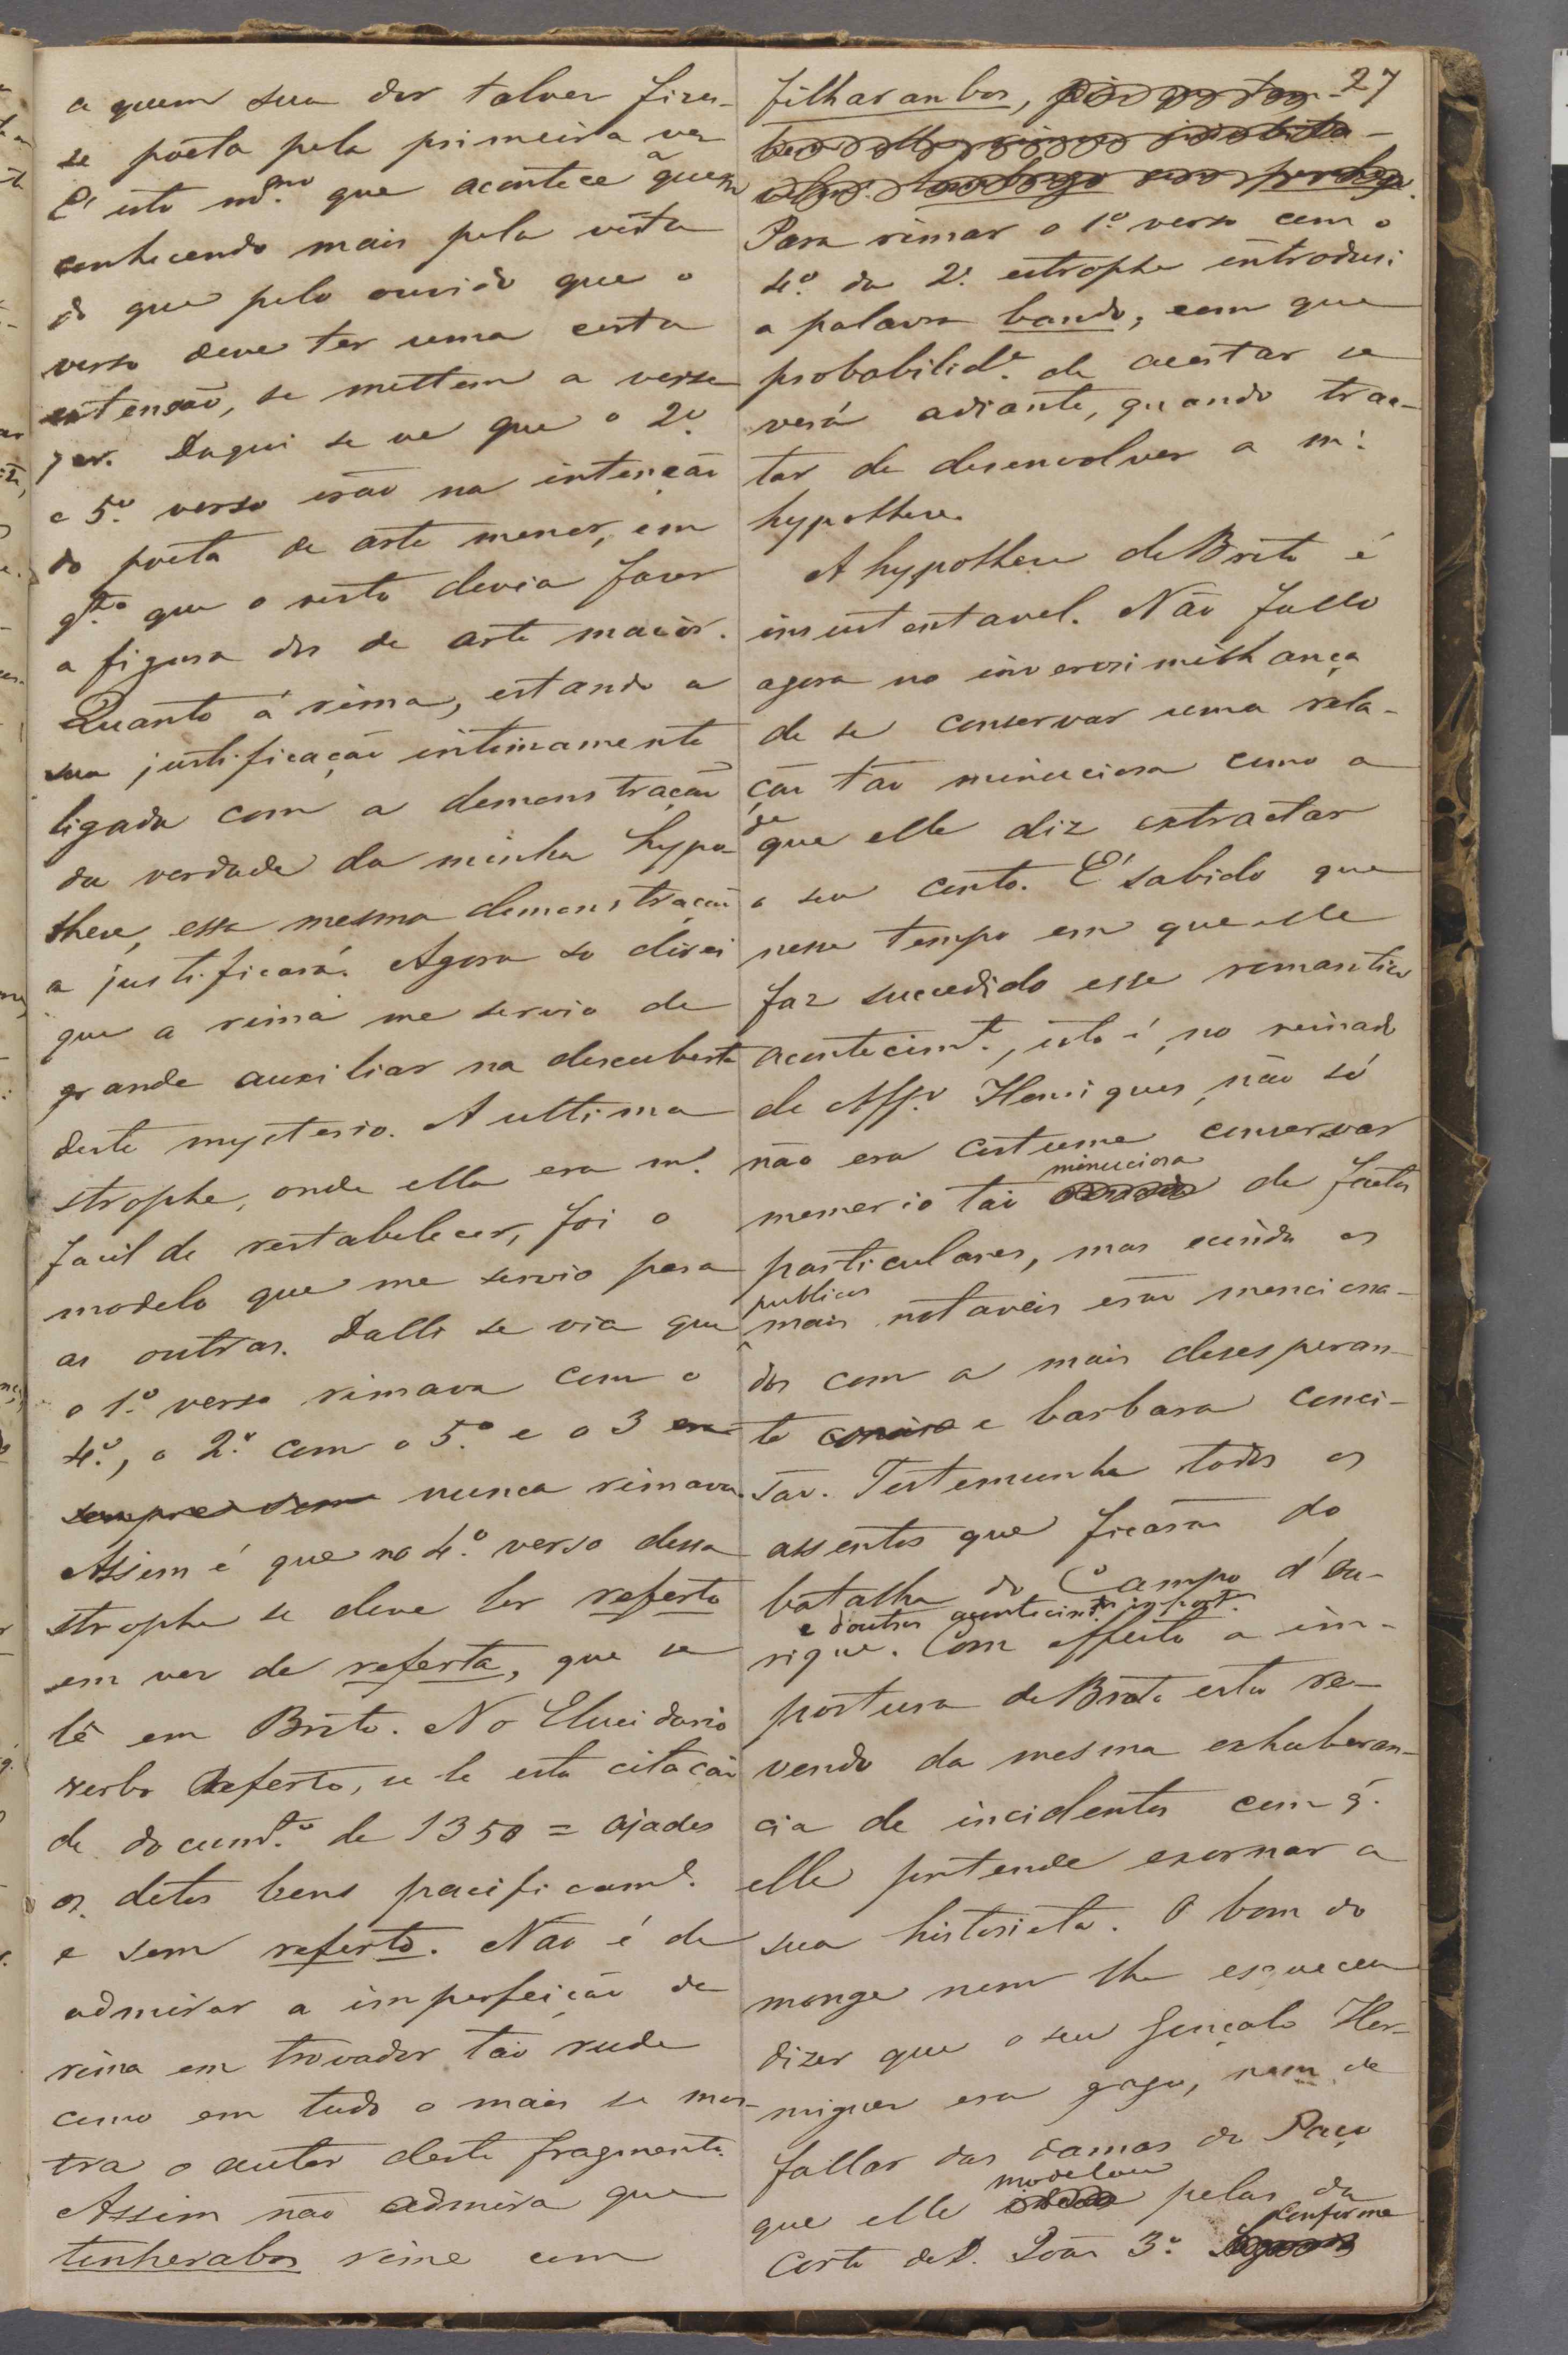 a quem sua dor talvez fizes-
se poeta pela primeira vez
É isto m.mo que acontece a quem
conhecendo mais pela vista
do que pelo ouvido que o
verso deve ter uma certa
extensão, se mettem a verse-
jar. Daqui se ve que o 2º
e 5º verso erão na intenção
do poeta de arte menor, em
q.to que o resto devia fazer
a figura dos de arte maior.
Quanto á rima, estando a
sua justificação intimamente
ligada com a demonstração
da verdade da minha hypo-
these, essa mesma demonstração
a justificará. Agora so direi
que a rima me servio de
grande auxiliar na descuberta
deste mysterio. A ultima
strophe, onde ella era m.
facil de restabelecer, foi o
modelo que me servio para
as outras. Dalli se via que
o 1º verso rimava com o
4º, o 2º com o 5º e o 3 era
sempre nunca rimava.
Assim é que no 4º verso dessa
strophe se deve ler referto
em vez de referta, que se
lê em Brito. No Elucidario
verbo Referto, se le esta citação
de docum.to de 1350 = ajades
os detos bens pacificam.e
e sem referto. Não é de
admirar a imperfeição da
rima em trovador tão rude
como em tudo o mais se mos-
tra o autor deste fragmento.
Assim não admira que
tenherabos rime com
27
filharanbos,
Para rimar o 1º verso com o
4º da 2ª estrophe introdusi
a palavra bando, com que
probabilid.e de acertar se
verá adiante, quando trac-
tar de desenvolver a m.
hypothese.
A hypothese de Brito é
insustentavel. Não fallo
agora na inverosimilhança
de se conservar uma rela-
ção tão minuciosa como a
de
que elle diz extractar
o seu conto. É sabido que
nesse tempo em que elle
faz succedido esse romantico
acontecim.to, isto é, no reinado
de Aff.o Henriques, não só
não era costume conservar
minuciosa
memoria tão de factos
particulares, mas ainda os
publicos
mais notaveis erão menciona-
dos com a mais desesperan-
te e barbara conci-
são. Testemunha todos os
assentos que ficarão da
batalha do Campo d'Ou-
e doutros acontecim.tos import.
rique. Com effeito a im-
postura de Brito esta re-
vendo da mesma exhuberan-
cia de incidentes com q.
elle pertende exornar a
sua historieta. O bom do
monge nem lhe esqueceu
dizer que o seu Gonçalo Her-
migues era gago, nem de
fallar das damas do Paço
modelou
que elle pelas da
conforme
Corte de D. João 3º